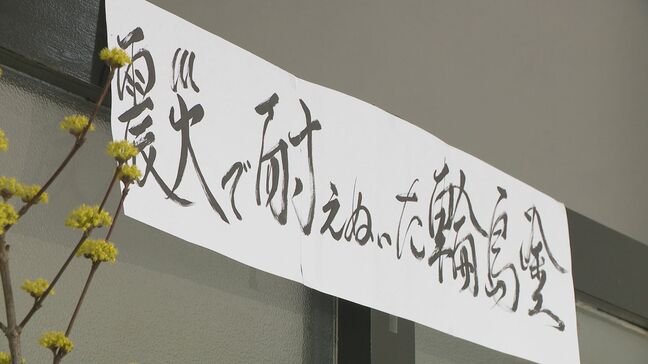 震災で耐えぬいた輪島塗